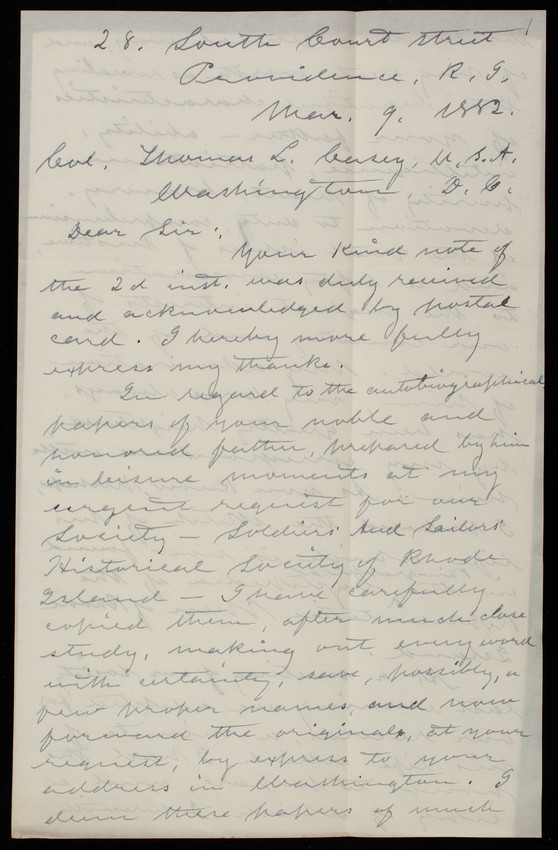 1
28. South Court street
Providence, R. I,
Mar. 9. 1882.
Col. Thomas L. Casey, U, S. A.
Washington, D. C.
Dear Sir:
Your kind note of
the 2d inst. was duly received
and acknowledged by postal
card. I hereby more fully
express my thanks.
In regard to the autobiographical
papers of your noble and
honored father, prepared by him
in leisure moments at my
urgent request for our
Society – Soldiers And Sailors
Historical Society of Rhode
Island – I have carefully
copied them, after much close
study, making out every word
with certainty, save, possibly, a
few proper names, and now
forward the originals, at your
request, by express to your
address in Washington. I
deem these papers of much